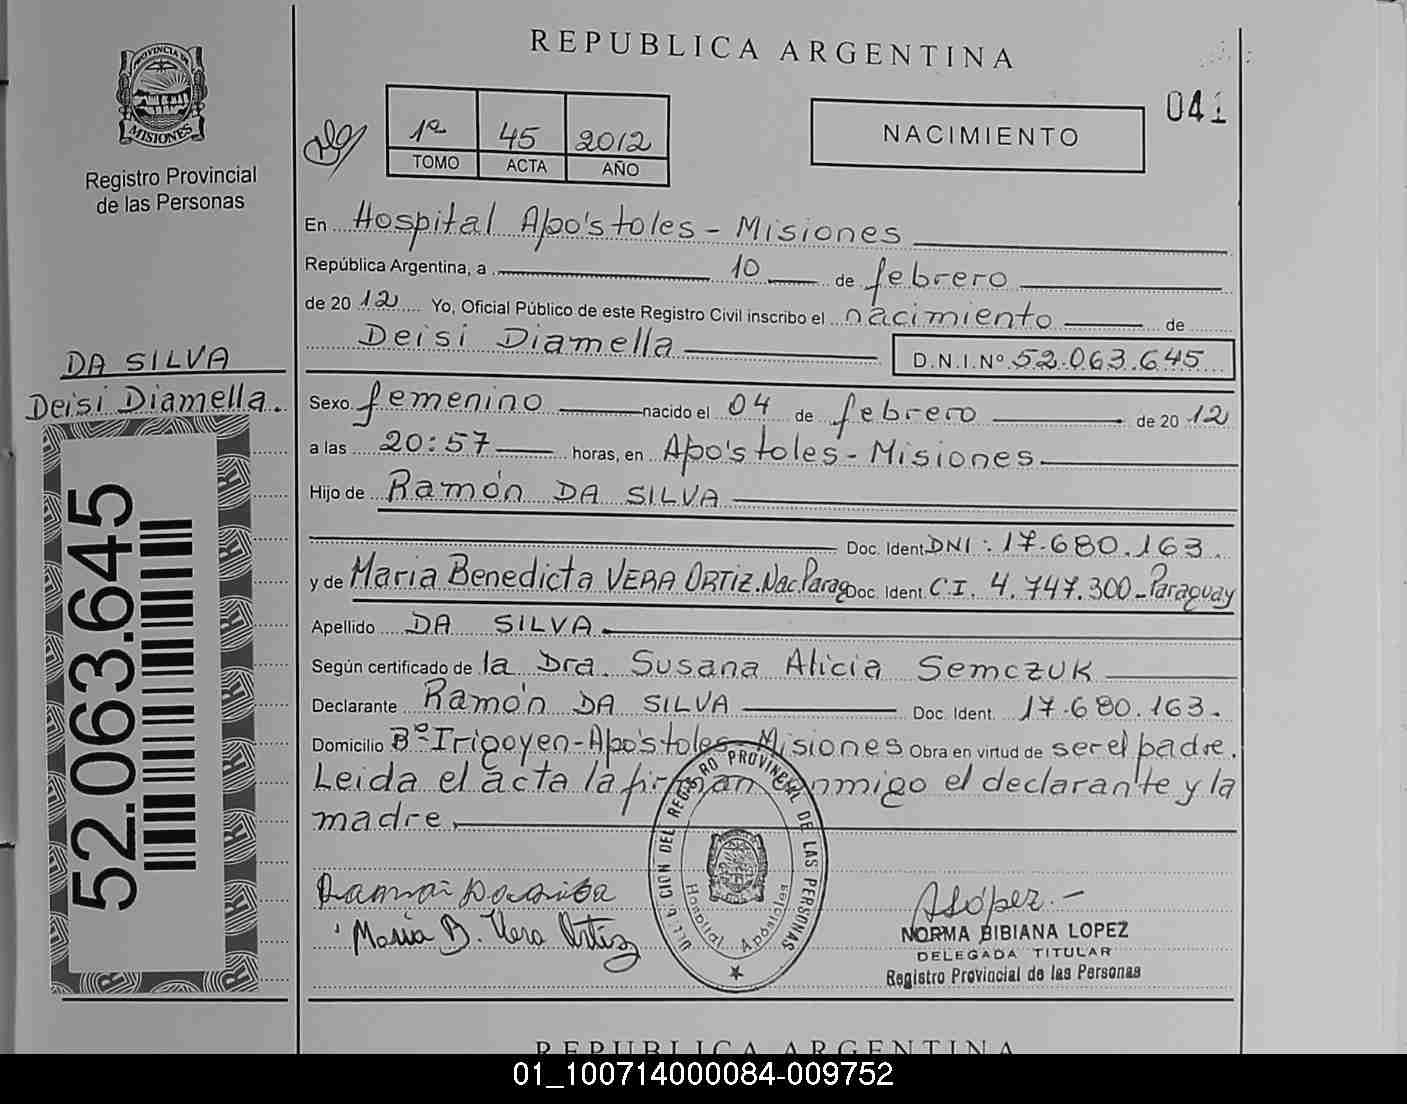 REPUBLICA ARGENTINA
041
PROVINCIA DE
MISIONES
Registro Provincial
de las Personas
1º 45 2012
TOMO ACTA AÑO
NACIMIENTO
En Hospital Apóstoles - Misiones
República Argentina, a 10 de febrero
de 2012 Yo, Oficial Público de este Registro Civil inscribo el nacimiento de
Deisi Diamella D.N.I.Nº 52.063.645
DA SILVA
Deisi Diamella.
52.063.645
Sexo femenino nacido el 04 de febrero de 2012
a las 20:57 horas, en Apóstoles - Misiones
Hijo de Ramón DA SILVA
Doc. Ident DNI: 17.680.163.
y de Maria Benedicta VERA ORTIZ. Nac. Parag Doc. Ident C.I. 4.747.300 - Paraguay
Apellido DA SILVA
Según certificado de la Dra. Susana Alicia Semczuk
Declarante Ramón DA SILVA Doc. Ident. 17.680.163.
Domicilio Bº Irigoyen - Apóstoles - Misiones Obra en virtud de ser el padre.
Leida el acta la firman conmigo el declarante y la
madre.
CION DEL REGISTRO PROVINCIAL DE LAS PERSONAS
Hospital Apóstoles
Ramon Da Silva
María B. Vera Ortiz
López.-
NORMA BIBIANA LOPEZ
DELEGADA TITULAR
Registro Provincial de las Personas
REPUBLICA ARGENTINA
01_100714000084-009752